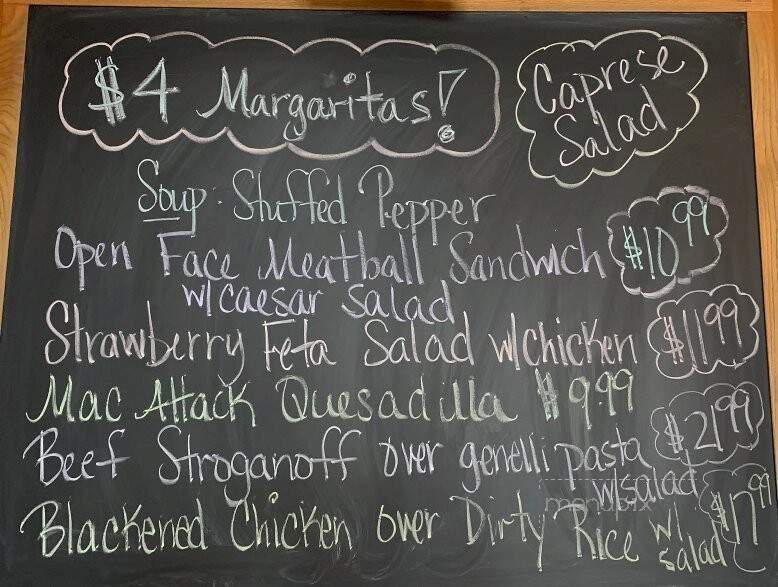 $4 Margaritas!
Caprese
Salad
Soup: Stuffed Pepper
Open Face Meatball Sandwich $10.99
w/caesar salad
Strawberry Feta Salad w/chicken $11.99
Mac Attack Quesadilla $9.99
Beef Stroganoff over genelli pasta $21.99
w/salad
menupix
Blackened Chicken over Dirty Rice w/ $17.99
salad